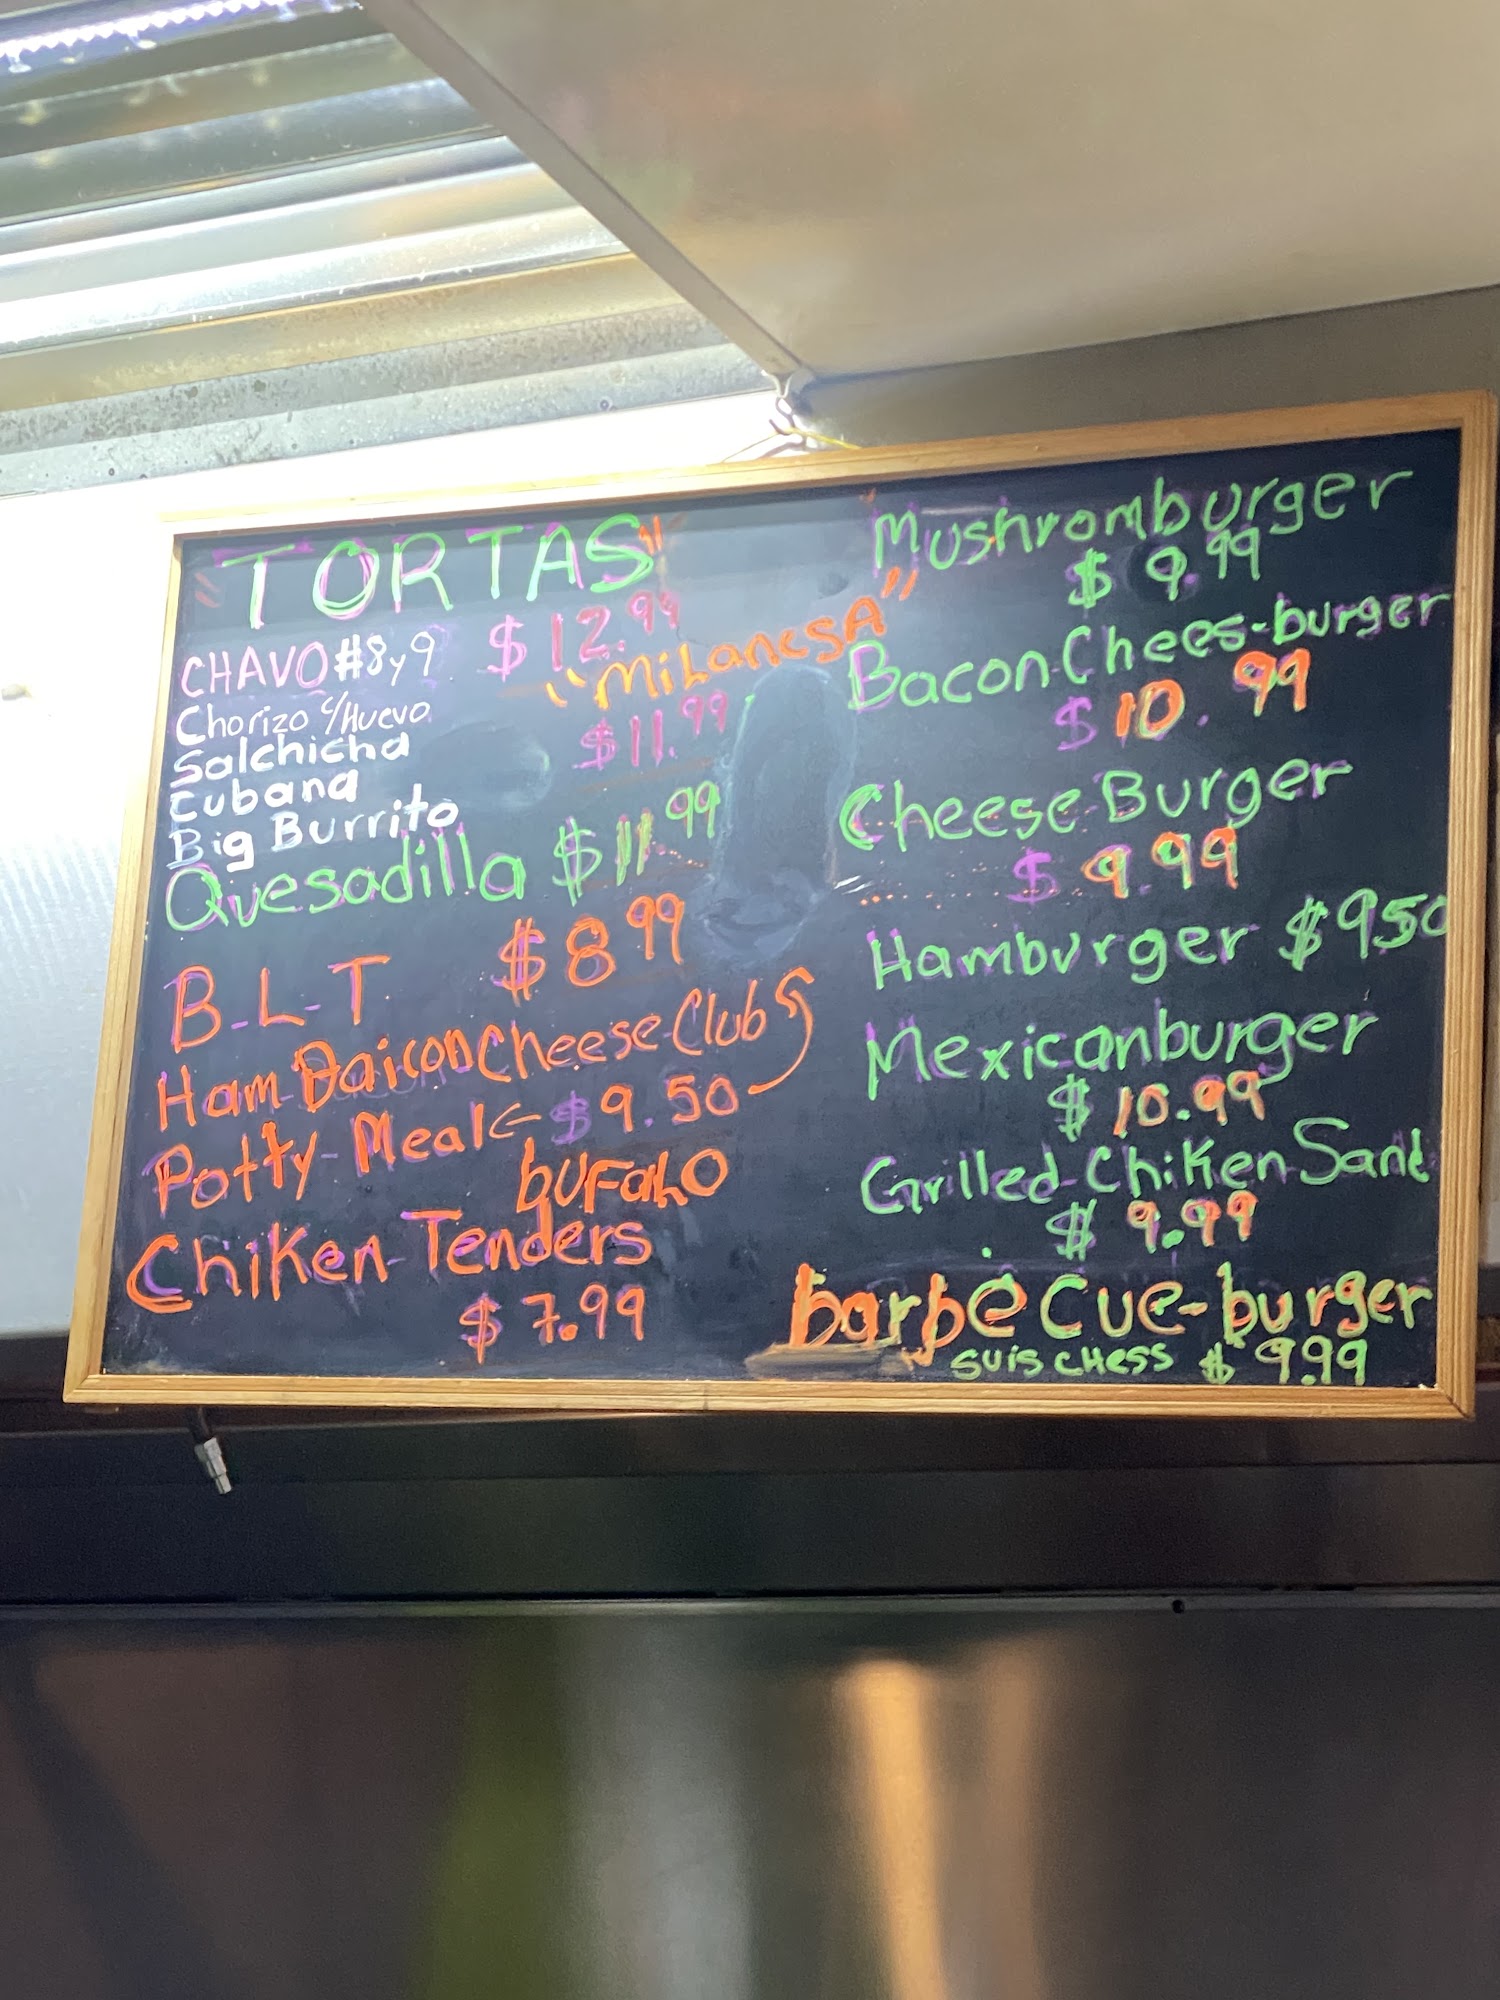 "TORTAS"
CHAVO #8 y 9 $12.99
"MiLanesA"
Chorizo c/Huevo $11.99
Salchicha
Cubana
Big Burrito
Quesadilla $11.99
B-L-T $8.99
Ham-Baicon Cheese-Club
Potty-Meal $9.50
bUFaLO
Chiken-Tenders
$7.99
Mushromburger
$9.99
Bacon-Chees-burger
$10.99
Cheese-Burger
$9.99
Hamburger $950
Mexicanburger
$10.99
Grilled-Chiken-Sand
$9.99
barbe Cue-burger
SUiS CHESS $9.99